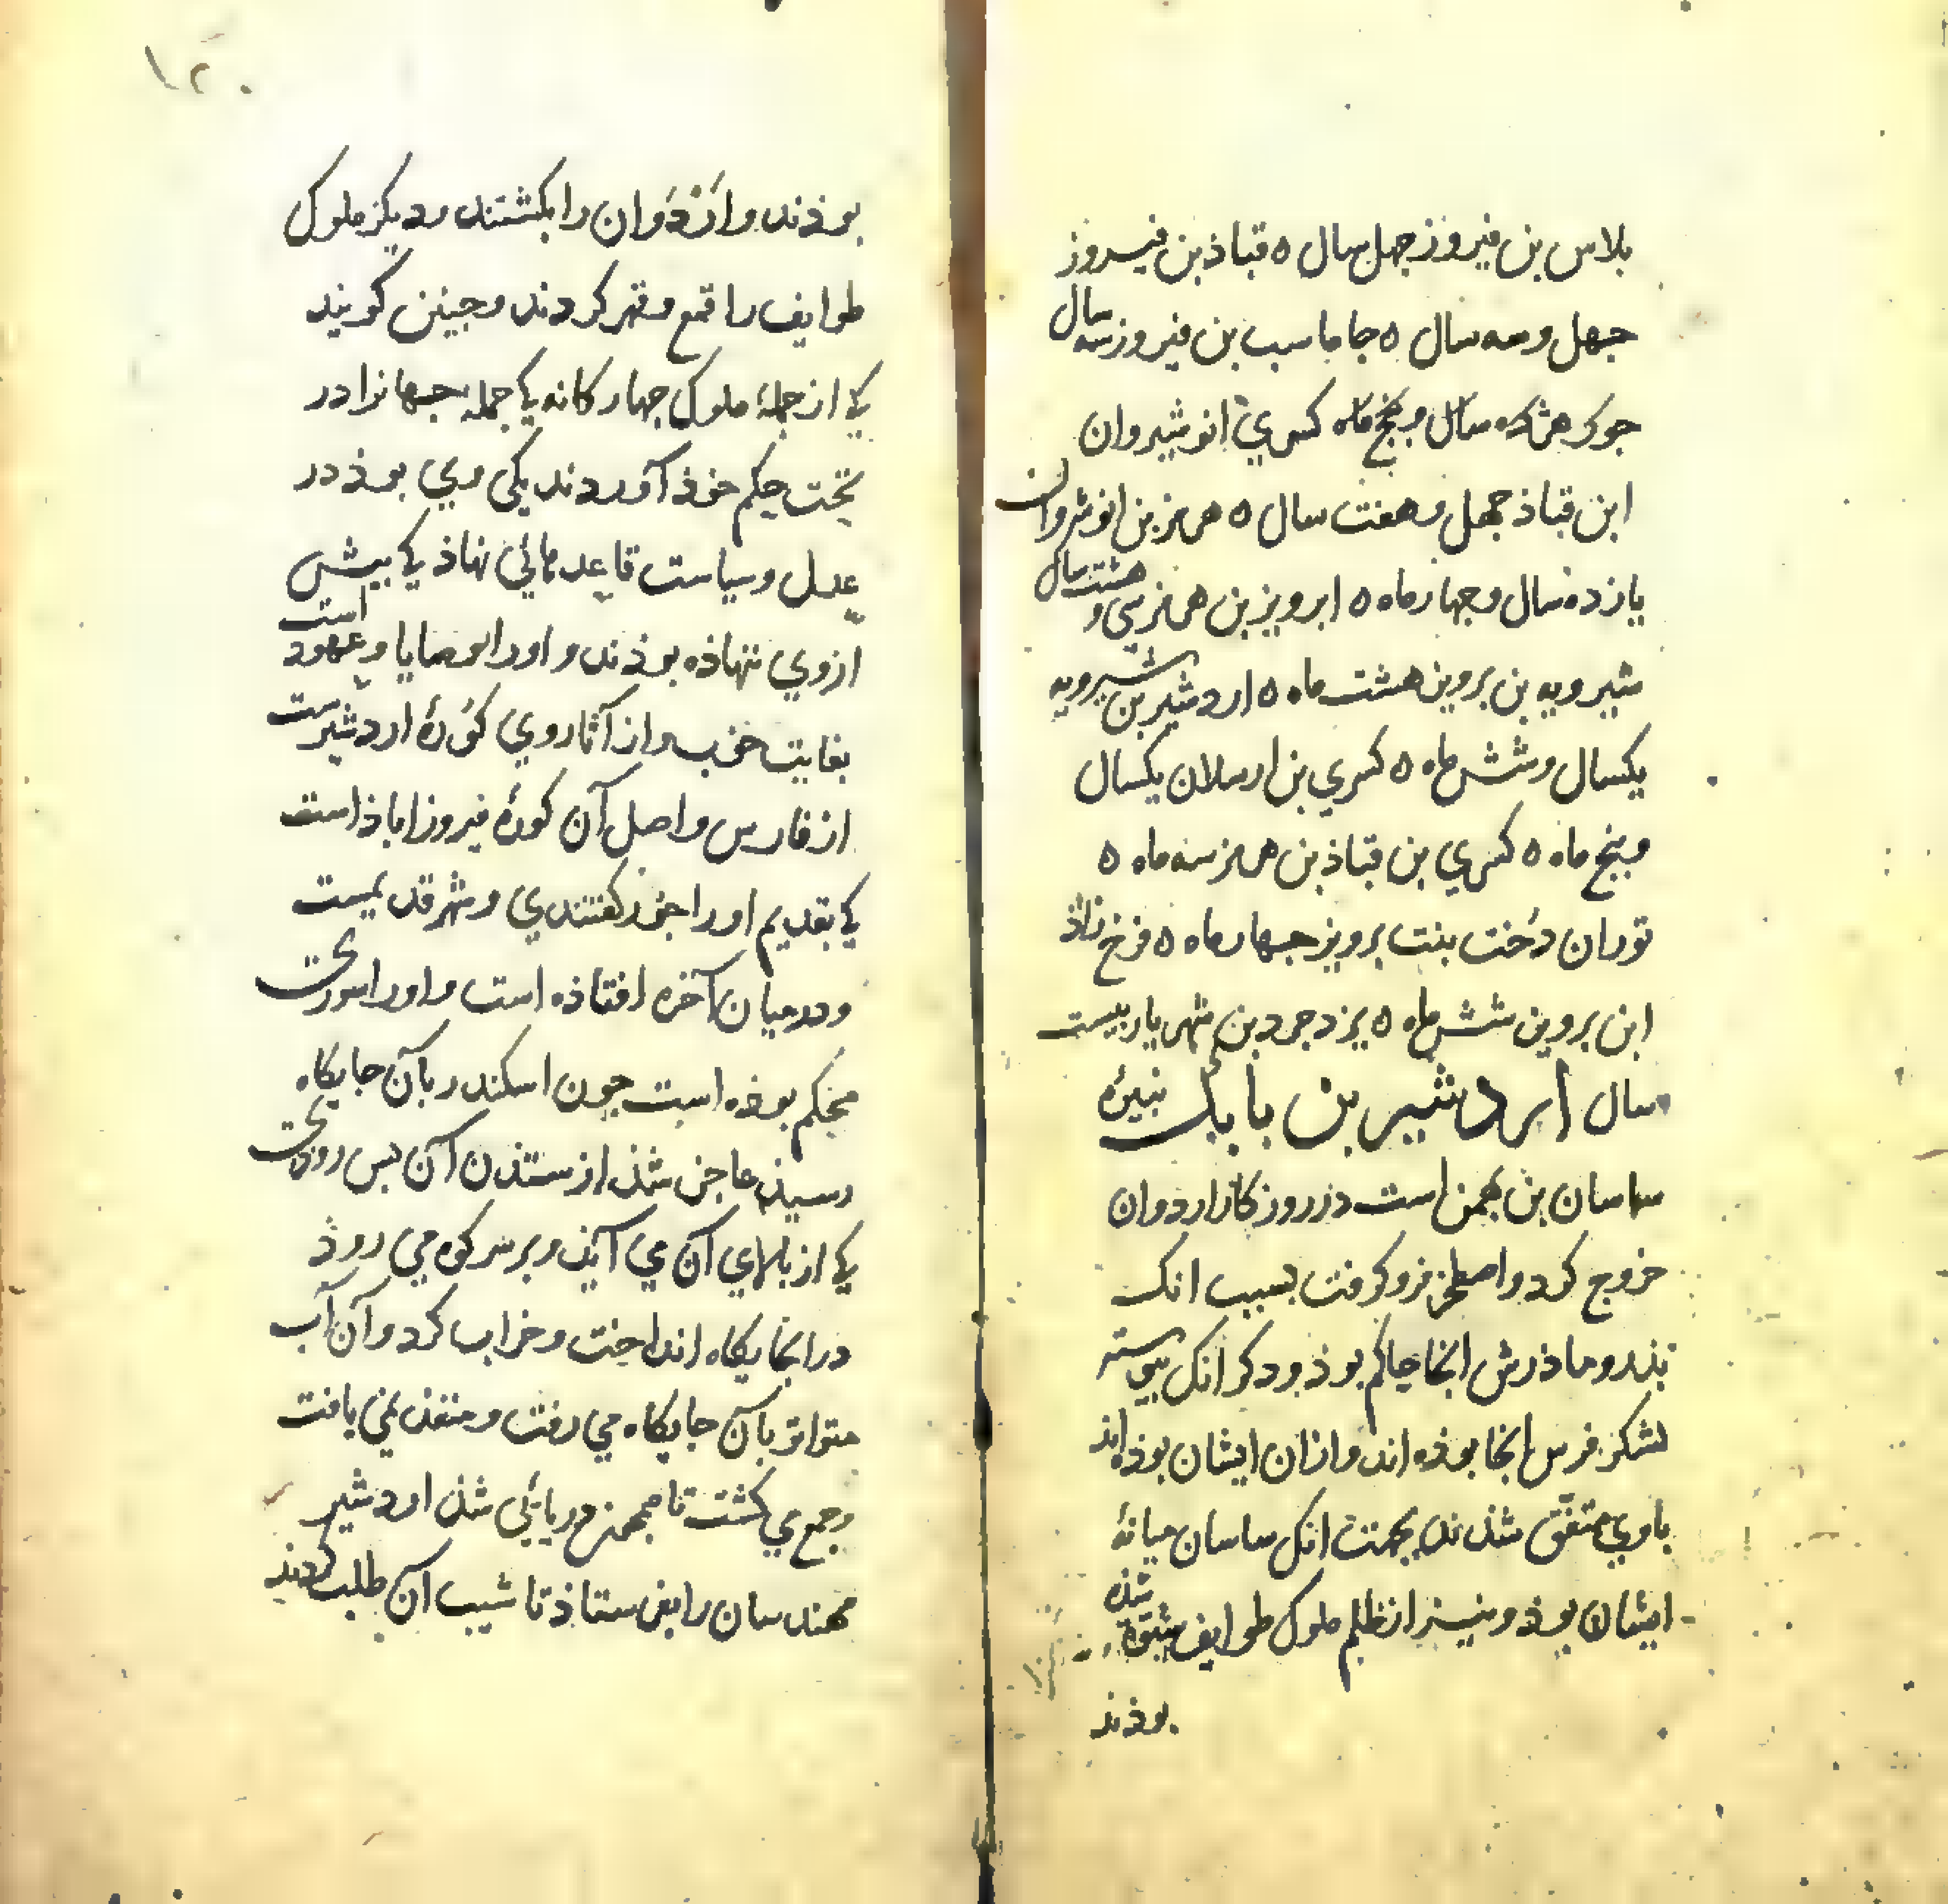 بلاس بن فیروز جهل سال ه قباذ بن فیروز
جهل وسه سال ه جاماسب بن فیروز سه سال
جوکرهرمزده سال وبنج ماه کسري انوشیروان
ابن قباذ جهل وهفت سال ه هرمز بن انوشروان
یازده سال وجهار ماه ه ابرویز بن هرمز سي و هشت سال
شیرویه بن برویز هشت ماه ه اردشیر بن شیرویه
یکسال وشش ماه ه کسري بن ارسلان یکسال
وبنج ماه ه کسري بن قباذ بن هرمز سه ماه ه
توران دخت بنت برویز جهار ماه ه فرخ زاذ
ابن برویز شش ماه ه یزدجرد بن شهریار بیست
سال اردشیر بن بابک نبیرۀ
ساسان بن بهمن است در روزکار اردوان
خروج کرد واصطخر فروکرفت بسبب انک
بذر وماذرش انجا حاکم بوذ ودکر انک بیوسته
لشکر فرس انجا بوذه اند وازان ایشان بوذه اند
باوي متفق شذند بجهت انک ساسان میانۀ
ایشان بوذ ونیز از ظلم ملوک طوایف ستوه شذه
بوذند
۱۲۰
بوذند واردوان را بکشتند ودیکر ملوک
طوایف را قمع وقهر کردند وجنین کویند
کی از جملۀ ملوک جهارکانه کی جمله جهانرا در
تحت حکم خوذ آوردند یکی وي بوذ در
عدل وسیاست قاعدهائي نهاذ کی بیش
ازوي ننهاذه بوذند واورا وصایا وعهود است
بغایت خوب واز آثار وي کورۀ اردشیرست
از فارس واصل آن کورۀ فیروزاباذ است
کی بقدیم اورا جور کفتندي وشهر قدیمیست
ودر میان آخره افتاذه است واورا سوری
محکم بوذه است جون اسکندر بآن جایکاه
رسیذ عاجز شذ از ستذن آن بس روذی
کی از بالاي آن مي آیذ وبر سر کوه مي روذ
در انجایکاه انداخت وخراب کرد وآن آب
متواتر بآن جایکاه مي رفت ومنفذ نمي یافت
وجمع مي کشت تا همجون دریائي شذ اردشیر
مهندسان را بفرستاذ تا شیب آن طلب کردند